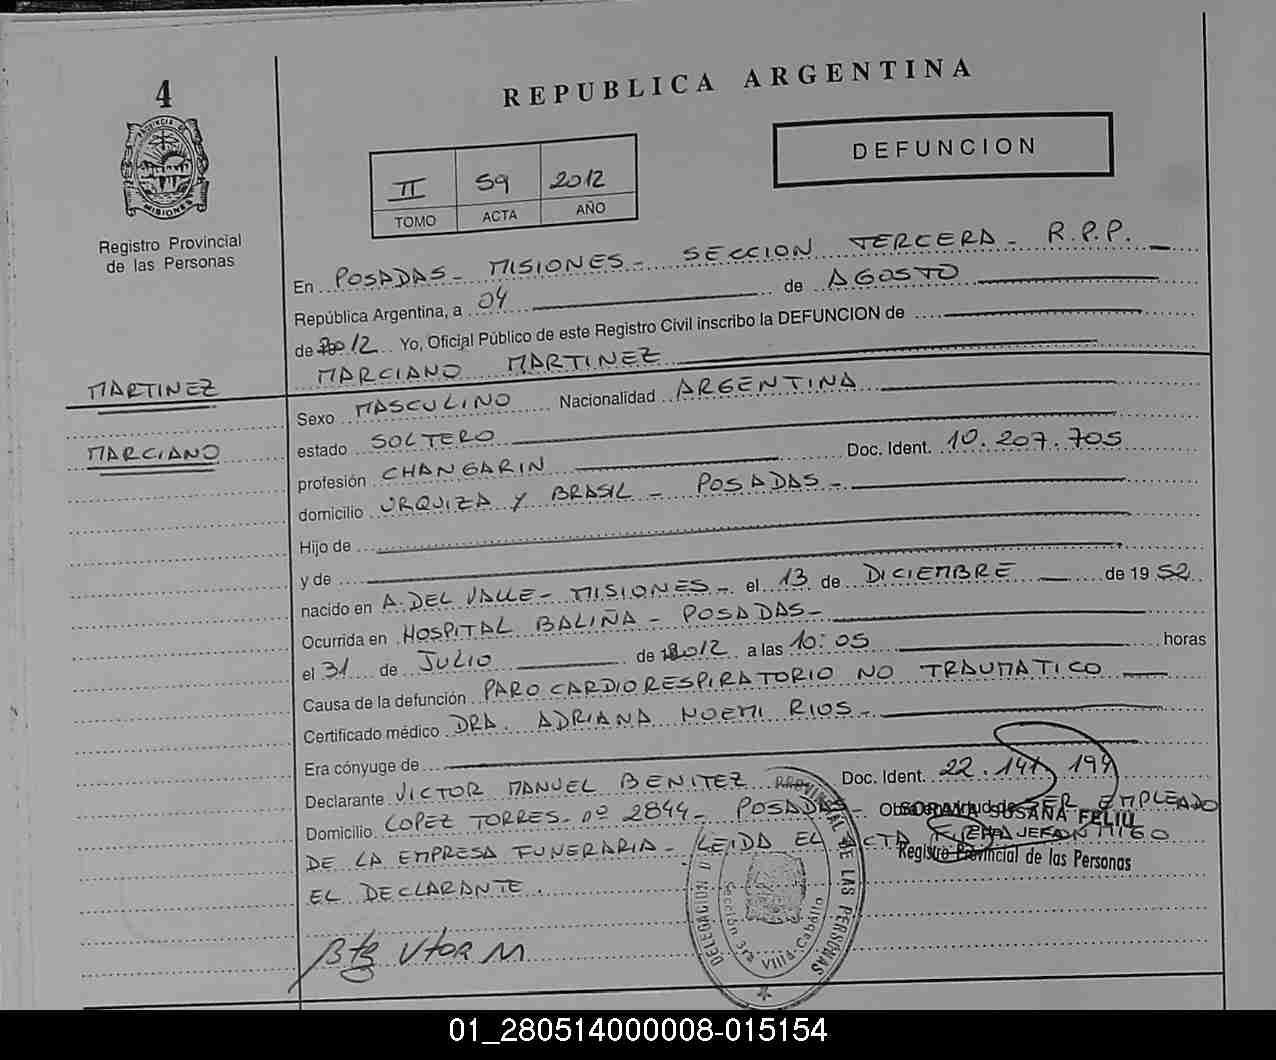 4
PROVINCIA DE
MISIONES
Registro Provincial
de las Personas
MARTINEZ
MARCIANO
REPUBLICA ARGENTINA
DEFUNCION
II 59 2012
TOMO ACTA AÑO
En POSADAS - MISIONES - SECCION TERCERA - R.P.P.
República Argentina, a 04 de AGOSTO
de 2012 Yo, Oficial Público de este Registro Civil inscribo la DEFUNCION de
MARCIANO MARTINEZ
Sexo MASCULINO Nacionalidad ARGENTINA
estado SOLTERO
profesión CHANGARIN Doc. Ident. 10.207.705
domicilio URQUIZA Y BRASIL - POSADAS -
Hijo de
y de
nacido en A. DEL VALLE - MISIONES - el 13 de DICIEMBRE de 19 52
Ocurrida en HOSPITAL BALIÑA - POSADAS -
el 31 de JULIO de 2012 a las 10:05 horas
Causa de la defunción PARO CARDIORESPIRATORIO NO TRAUMATICO
Certificado médico DRA. ADRIANA NOEMI RIOS -
Era cónyuge de
Declarante VICTOR MANUEL BENITEZ Doc. Ident. 22.141.194
Domicilio LOPEZ TORRES - nº 2844 - POSADAS - Obra en virtud de SER EMPLEADO
DE LA EMPRESA FUNERARIA - LEIDA EL ACTA FIRMA CONMIGO
EL DECLARANTE.
SORAYA SUSANA FELIU
JEFA
Registro Provincial de las Personas
Btz Vtor M
DELEGACION PROVINCIAL DE LAS PERSONAS
Sección 3ra Villa Cabello
01_280514000008-015154